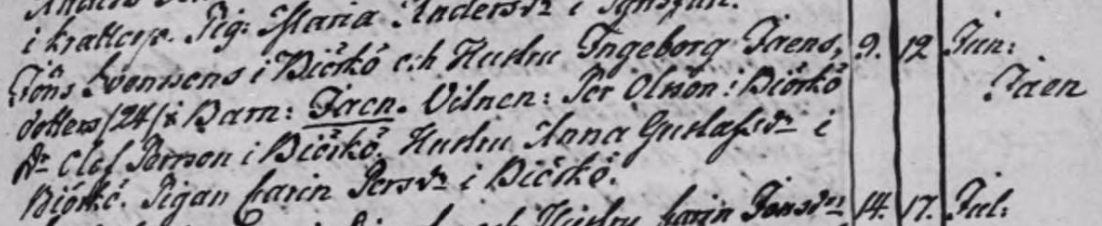 i Krattorp. Pig: Maria Andersdr i
Jöns Svensens i Biörkö och Hustru Ingeborg Jaens, 9. 12 Jun:
dotters /24/: Barn: Jaen. Vitnen: Per Olsson i Biörkö Jaen
Dr Olof Persson i Biörkö. Hustru Anna Gustafsdr i
Biörkö. Pigan Carin Persdr i Biörkö.
Hustru Carin Jonsdr 14. 17. Jul: